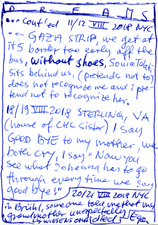 DREAMS
... cont'ed 11/12 VIII 2018 NYC
... GAZA STRIP, we get at
it's border too early off the
bus, without shoes, Sonia
sits behind us, (pretends not to)
does not recognize me and i pre-
tend not to recognize her.
18/19 VIII 2018 STERLING, VA
(house of CHE sister) I say
GOOD BYE to my mother, we
both cry, I say "Now you
see what Johenny has to go
through every time we say
good bye."
20/21 VIII 2018 NYC
in Brühl, someone told me that my
grandmother unexpectedly
died